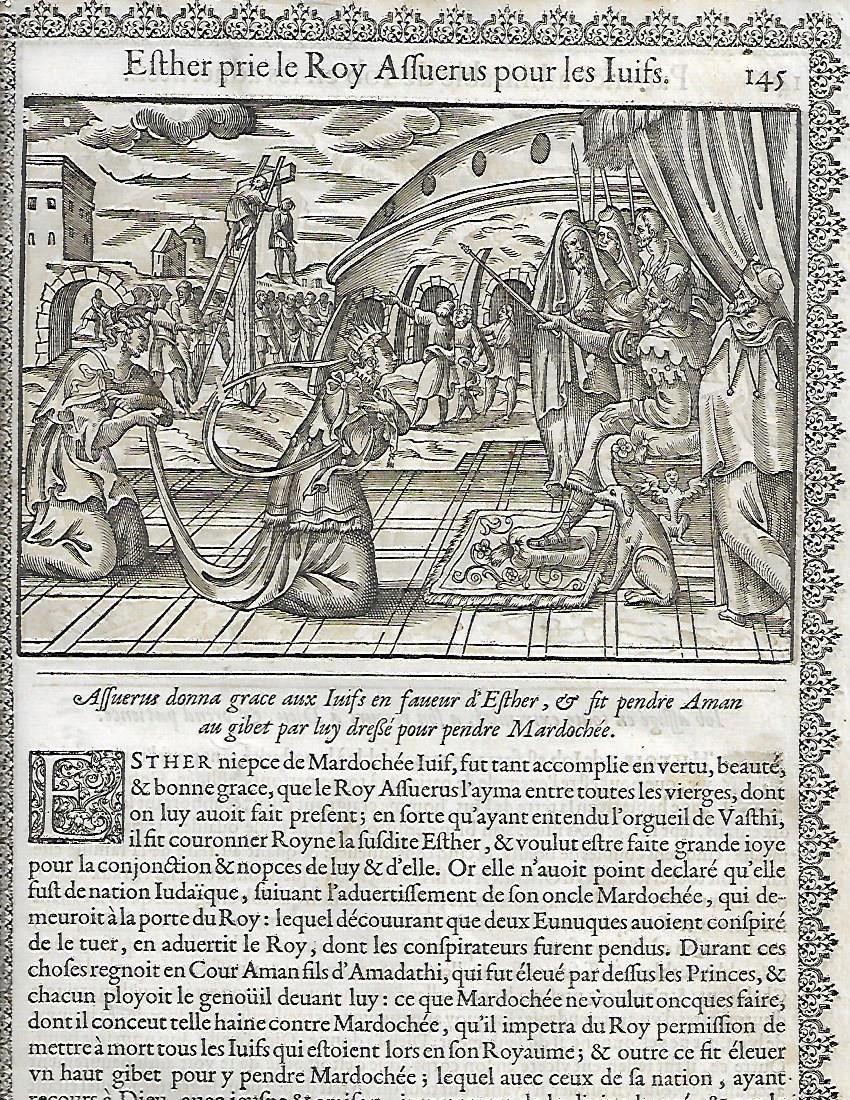 Eſther prie le Roy Aſſuerus pour les Iuifs. 145
Aſſuerus donna grace aux Iuifs en faueur d'Eſther, & fit pendre Aman
au gibet par luy dreſſé pour pendre Mardochée.
ESTHER niepce de Mardochée Iuif, fut tant accomplie en vertu, beauté,
& bonne grace, que le Roy Aſſuerus l'ayma entre toutes les vierges, dont
on luy auoit fait preſent; en ſorte qu'ayant entendu l'orgueil de Vaſthi,
il fit couronner Royne la ſuſdite Eſther, & voulut eſtre faite grande ioye
pour la conjonction & nopces de luy & d'elle. Or elle n'auoit point declaré qu'elle
fuſt de nation Iudaïque, ſuiuant l'aduertiſſement de ſon oncle Mardochée, qui de-
meuroit à la porte du Roy: lequel découurant que deux Eunuques auoient conſpiré
de le tuer, en aduertit le Roy, dont les conſpirateurs furent pendus. Durant ces
choſes regnoit en Cour Aman fils d'Amadathi, qui fut éleué par deſſus les Princes, &
chacun ployoit le genoüil deuant luy: ce que Mardochée ne voulut oncques faire,
dont il conceut telle haine contre Mardochée, qu'il impetra du Roy permiſſion de
mettre à mort tous les Iuifs qui eſtoient lors en ſon Royaume; & outre ce fit éleuer
vn haut gibet pour y pendre Mardochée; lequel auec ceux de ſa nation, ayant
recours à Dieu,